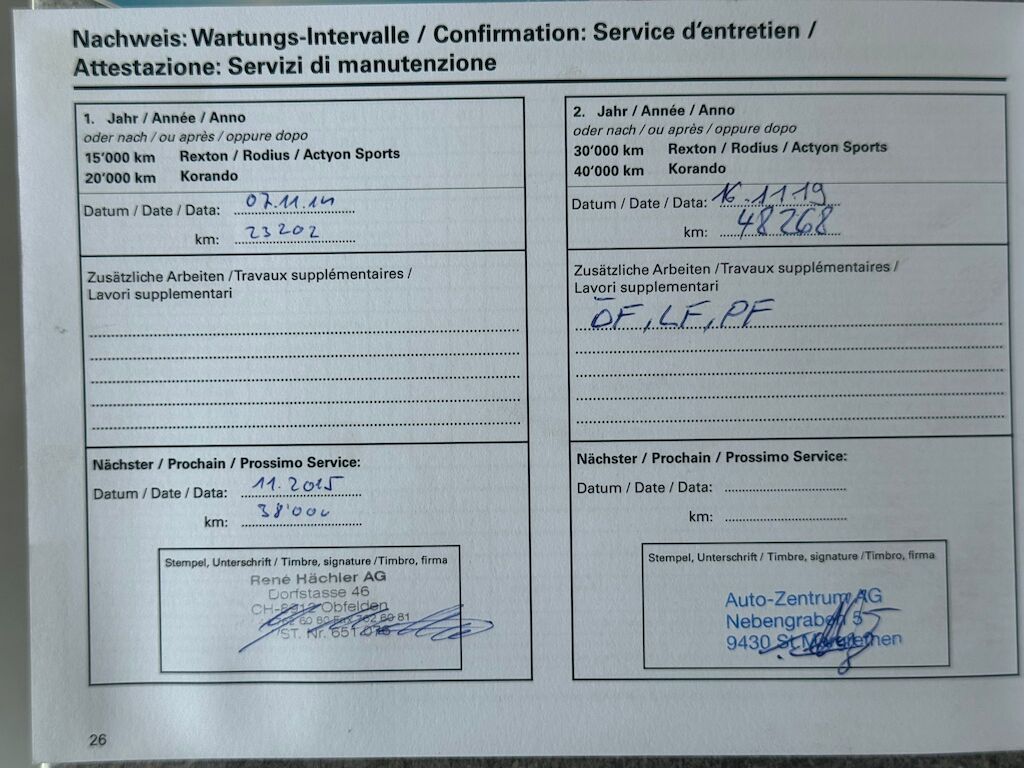 Nachweis: Wartungs-Intervalle / Confirmation: Service d'entretien /
Attestazione: Servizi di manutenzione
1. Jahr / Année / Anno
oder nach / ou après / oppure dopo
15'000 km Rexton / Rodius / Actyon Sports
20'000 km Korando
Datum / Date / Data: 07.11.14
km: 23202
Zusätzliche Arbeiten / Travaux supplémentaires /
Lavori supplementari
Nächster / Prochain / Prossimo Service:
Datum / Date / Data: 11.2015
km: 38'000
Stempel, Unterschrift / Timbre, signature / Timbro, firma
René Hächler AG
Dorfstasse 46
CH-8912 Obfelden
ST. Nr. 651
2. Jahr / Année / Anno
oder nach / ou après / oppure dopo
30'000 km Rexton / Rodius / Actyon Sports
40'000 km Korando
Datum / Date / Data: 16.11.19
km: 48268
Zusätzliche Arbeiten / Travaux supplémentaires /
Lavori supplementari
ÖF, LF, PF
Nächster / Prochain / Prossimo Service:
Datum / Date / Data:
km:
Stempel, Unterschrift / Timbre, signature / Timbro, firma
Auto-Zentrum AG
Nebengraben 5
9430 St.Margrethen
26